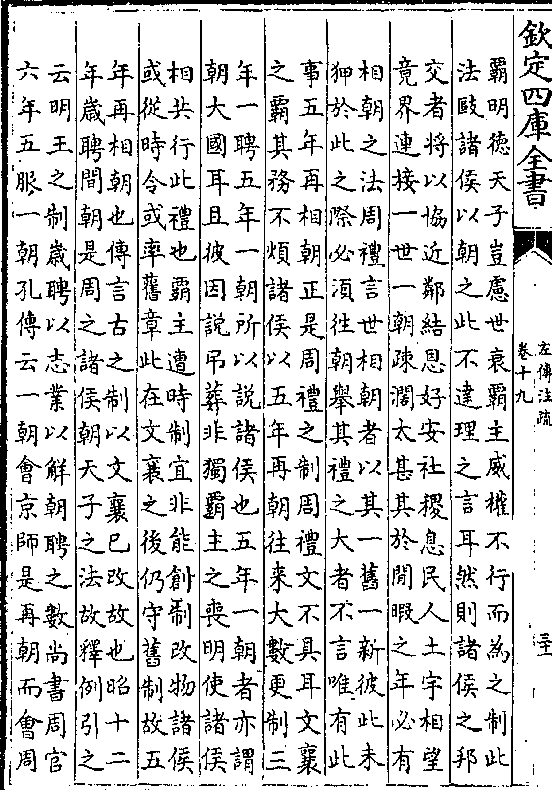 欽定四庫全書
左傳注疏
卷十九
霸明德天子豈慮世衰霸主威權不行而為之制此
法敺諸侯以朝之此不達理之言耳然則諸侯之邦
交者將以協近鄰結恩好安社稷息民人土宇相望
竟界連接一世一朝疎濶太甚其於閒暇之年必有
相朝之法周禮言世相朝者以其一舊一新彼此未
狎於此之際必須往朝舉其禮之大者不言唯有此
事五年再相朝正是周禮之制周禮文不具耳文襄
之霸其務不煩諸侯以五年再朝往來大數更制三
年一聘五年一朝所以説諸侯也五年一朝者亦謂
朝大國耳且彼因説弔葬非獨霸主之喪明使諸侯
相共行此禮也霸主遭時制宜非能創制改物諸侯
或從時令或率舊章此在文襄之後仍守舊制故五
年再相朝也傳言古之制以文襄已改故也昭十二
年歲聘間朝是周之諸侯朝天子之法故釋例引之
云明王之制歲聘以志業以解朝聘之數尚書周官
六年五服一朝孔傳云一朝會京師是再朝而會周